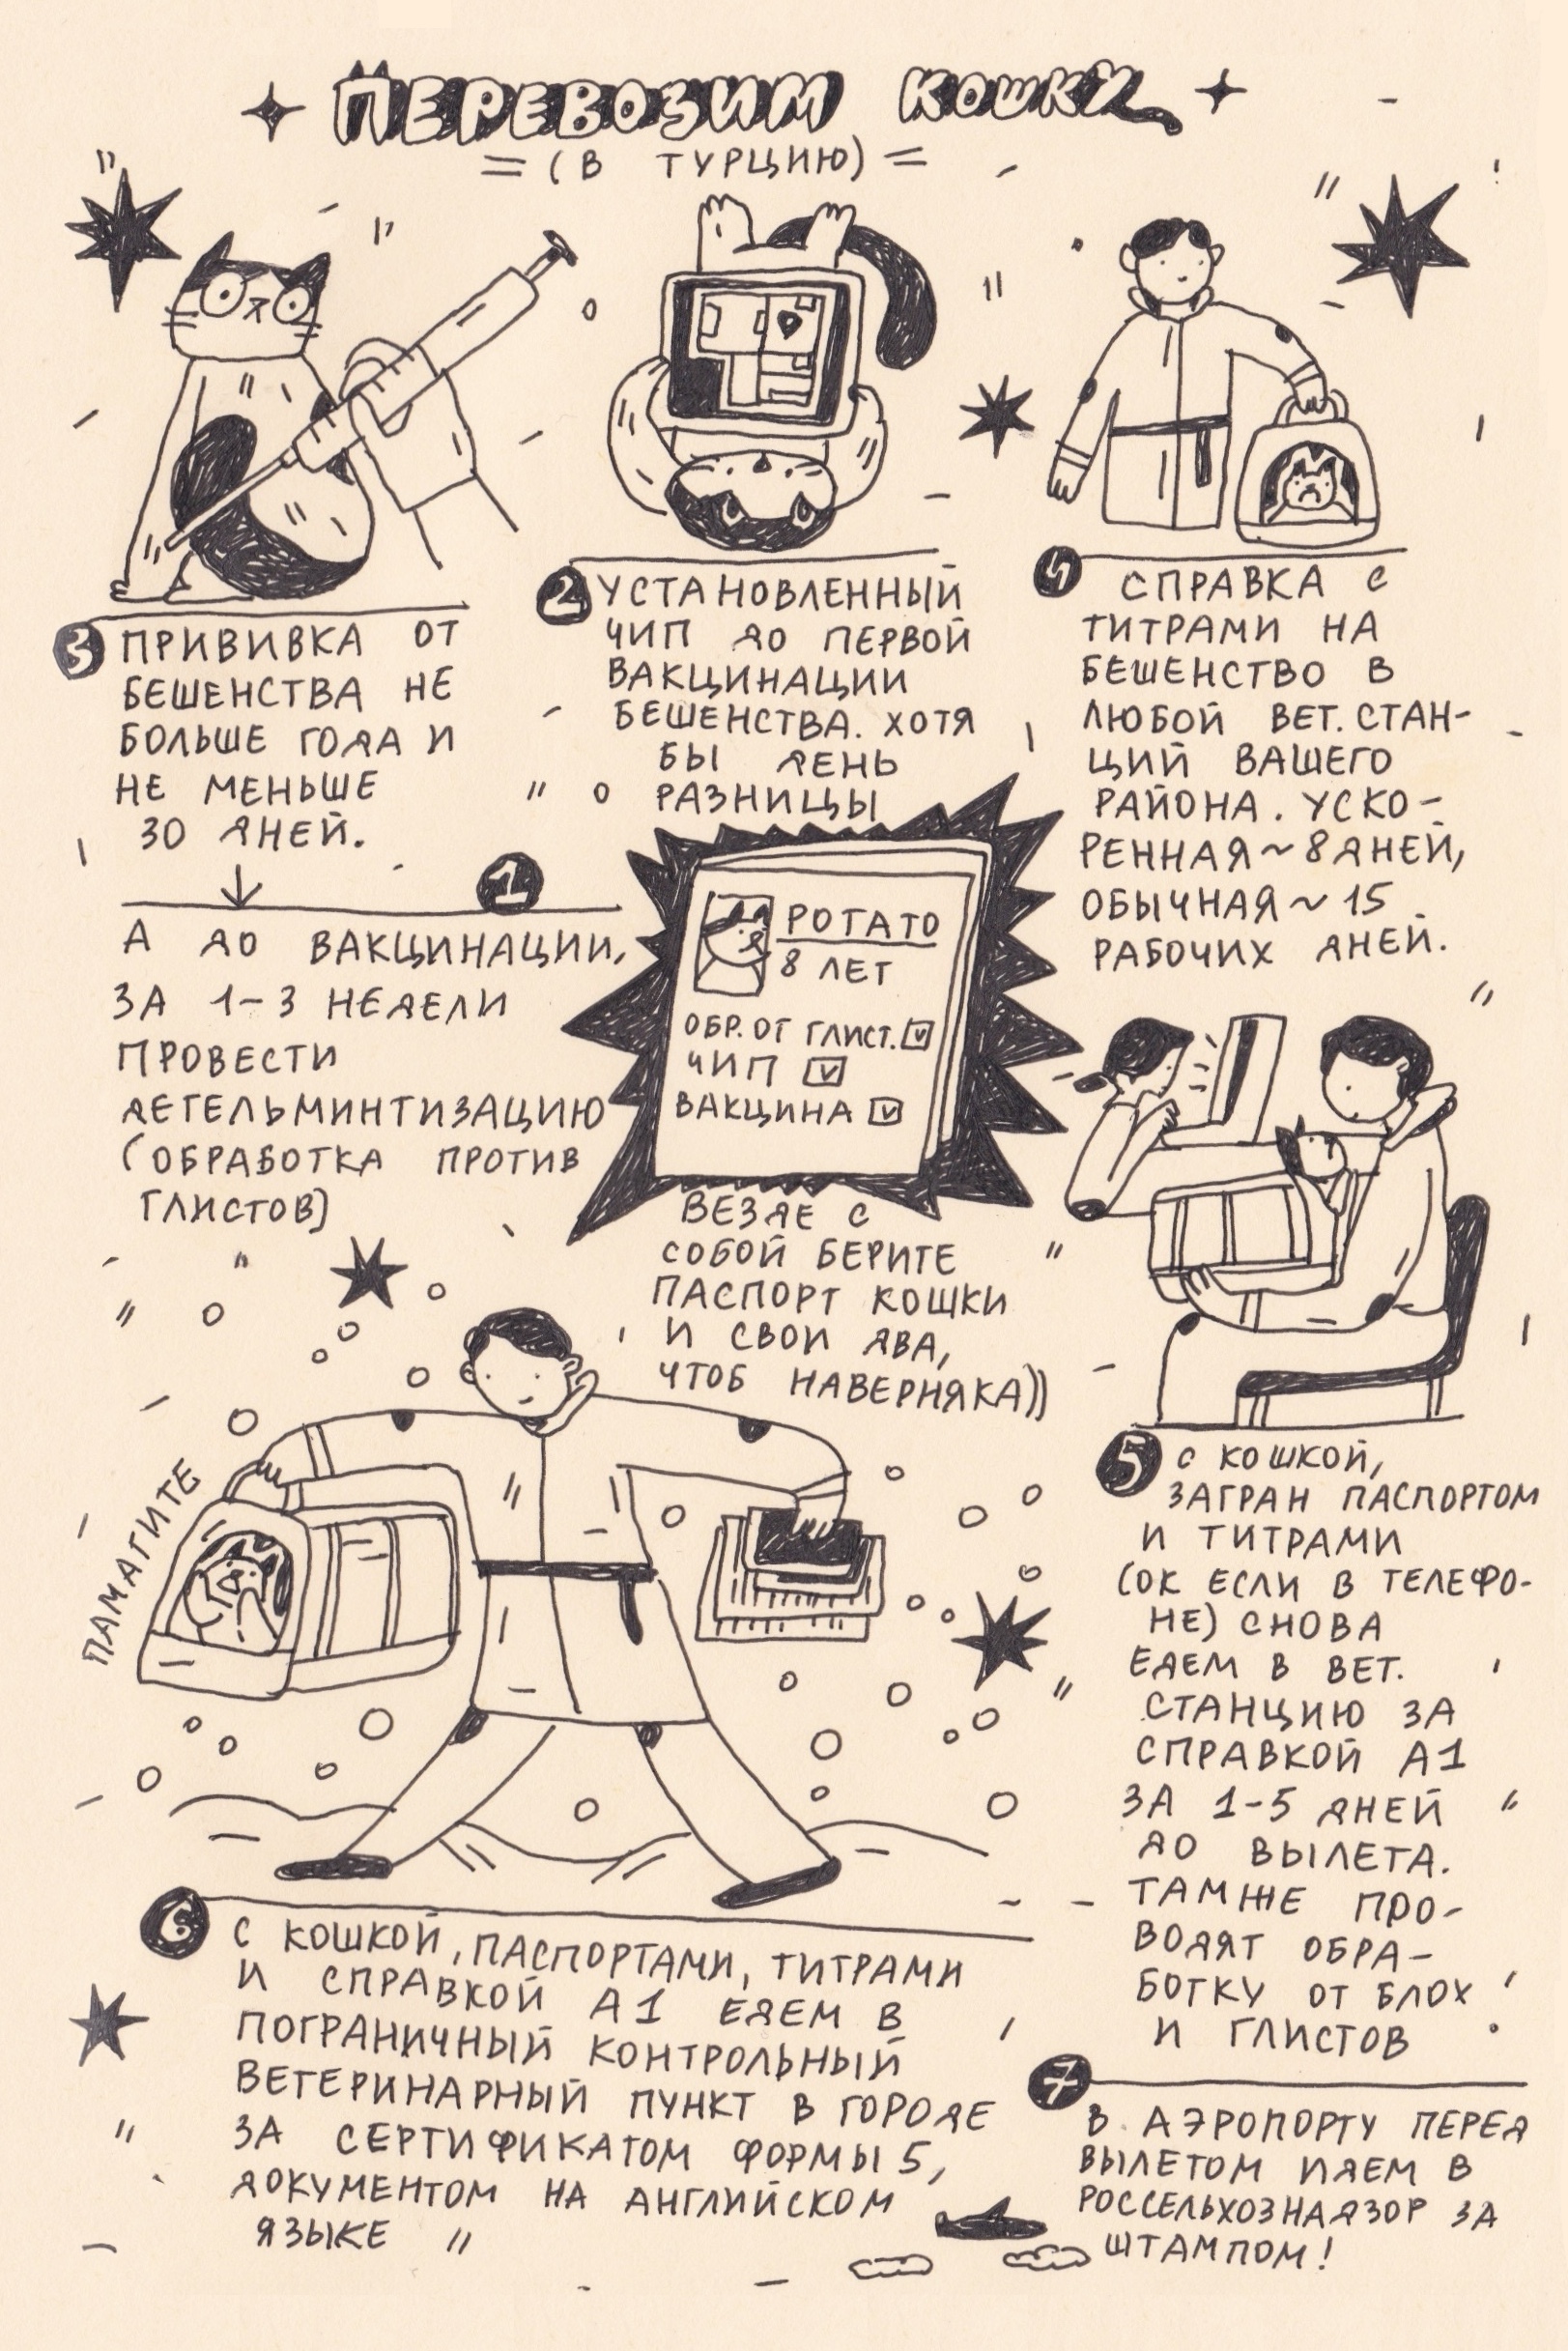 ПЕРЕВОЗИМ КОШКУ
(В ТУРЦИЮ)
3 ПРИВИВКА ОТ
БЕШЕНСТВА НЕ
БОЛЬШЕ ГОДА И
НЕ МЕНЬШЕ
30 ДНЕЙ.
1
А ДО ВАКЦИНАЦИИ,
ЗА 1-3 НЕДЕЛИ
ПРОВЕСТИ
ДЕГЕЛЬМИНТИЗАЦИЮ
(ОБРАБОТКА ПРОТИВ
ГЛИСТОВ)
2 УСТАНОВЛЕННЫЙ
ЧИП ДО ПЕРВОЙ
ВАКЦИНАЦИИ
БЕШЕНСТВА. ХОТЯ
БЫ ДЕНЬ
РАЗНИЦЫ
POTATO
8 ЛЕТ
ОБР. ОТ ГЛИСТ.
ЧИП
ВАКЦИНА
ВЕЗДЕ С
СОБОЙ БЕРИТЕ
ПАСПОРТ КОШКИ
И СВОИ ДВА,
ЧТОБ НАВЕРНЯКА))
4 СПРАВКА С
ТИТРАМИ НА
БЕШЕНСТВО В
ЛЮБОЙ ВЕТ. СТАН-
ЦИЙ ВАШЕГО
РАЙОНА. УСКО-
РЕННАЯ ~ 8 ДНЕЙ,
ОБЫЧНАЯ ~ 15
РАБОЧИХ ДНЕЙ.
5 С КОШКОЙ,
ЗАГРАН ПАСПОРТОМ
И ТИТРАМИ
(ОК ЕСЛИ В ТЕЛЕФО-
НЕ) СНОВА
ЕДЕМ В ВЕТ.
СТАНЦИЮ ЗА
СПРАВКОЙ А1
ЗА 1-5 ДНЕЙ
ДО ВЫЛЕТА.
ТАМ ЖЕ ПРО-
ВОДЯТ ОБРА-
БОТКУ ОТ БЛОХ
И ГЛИСТОВ
ПАМАГИТЕ
6 С КОШКОЙ, ПАСПОРТАМИ, ТИТРАМИ
И СПРАВКОЙ А1 ЕДЕМ В
ПОГРАНИЧНЫЙ КОНТРОЛЬНЫЙ
ВЕТЕРИНАРНЫЙ ПУНКТ В ГОРОДЕ
ЗА СЕРТИФИКАТОМ ФОРМЫ 5,
ДОКУМЕНТОМ НА АНГЛИЙСКОМ
ЯЗЫКЕ
7
В АЭРОПОРТУ ПЕРЕД
ВЫЛЕТОМ ИДЕМ В
РОССЕЛЬХОЗНАДЗОР ЗА
ШТАМПОМ!